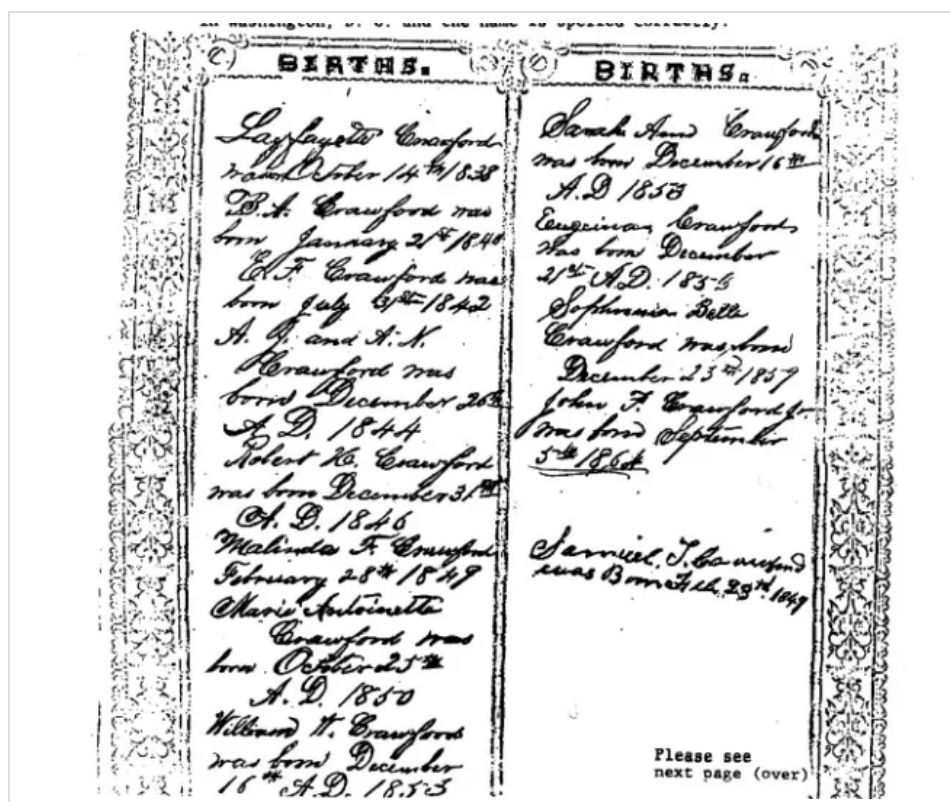 in Washington, D. C. and the name is spelled correctly.
BIRTHS.
Layfayette Crawford
was October 14th 1838
B. A. Crawford was
born January 21st 1840
E. F. Crawford was
born July 31st 1842
A. J. and A. N.
Crawford was
born December 26th
A. D. 1844
Robert H. Crawford
was born December 31st
A. D. 1846
Malinda F. Crawford
February 28th 1849
Marie Antoinette
Crawford was
born October 25th
A. D. 1850
William W. Crawford
was born December
16th A. D. 1853
BIRTHS.
Sarah Ann Crawford
was born December 16th
A. D 1853
Crawford
was born December
21st A. D.
Sophronia Belle
Crawford was born
December 23rd 1859
John F. Crawford Jr
was born September
5th
Samuel T. Crawford
was Born Feb. 28th 1849
Please see
next page (over)